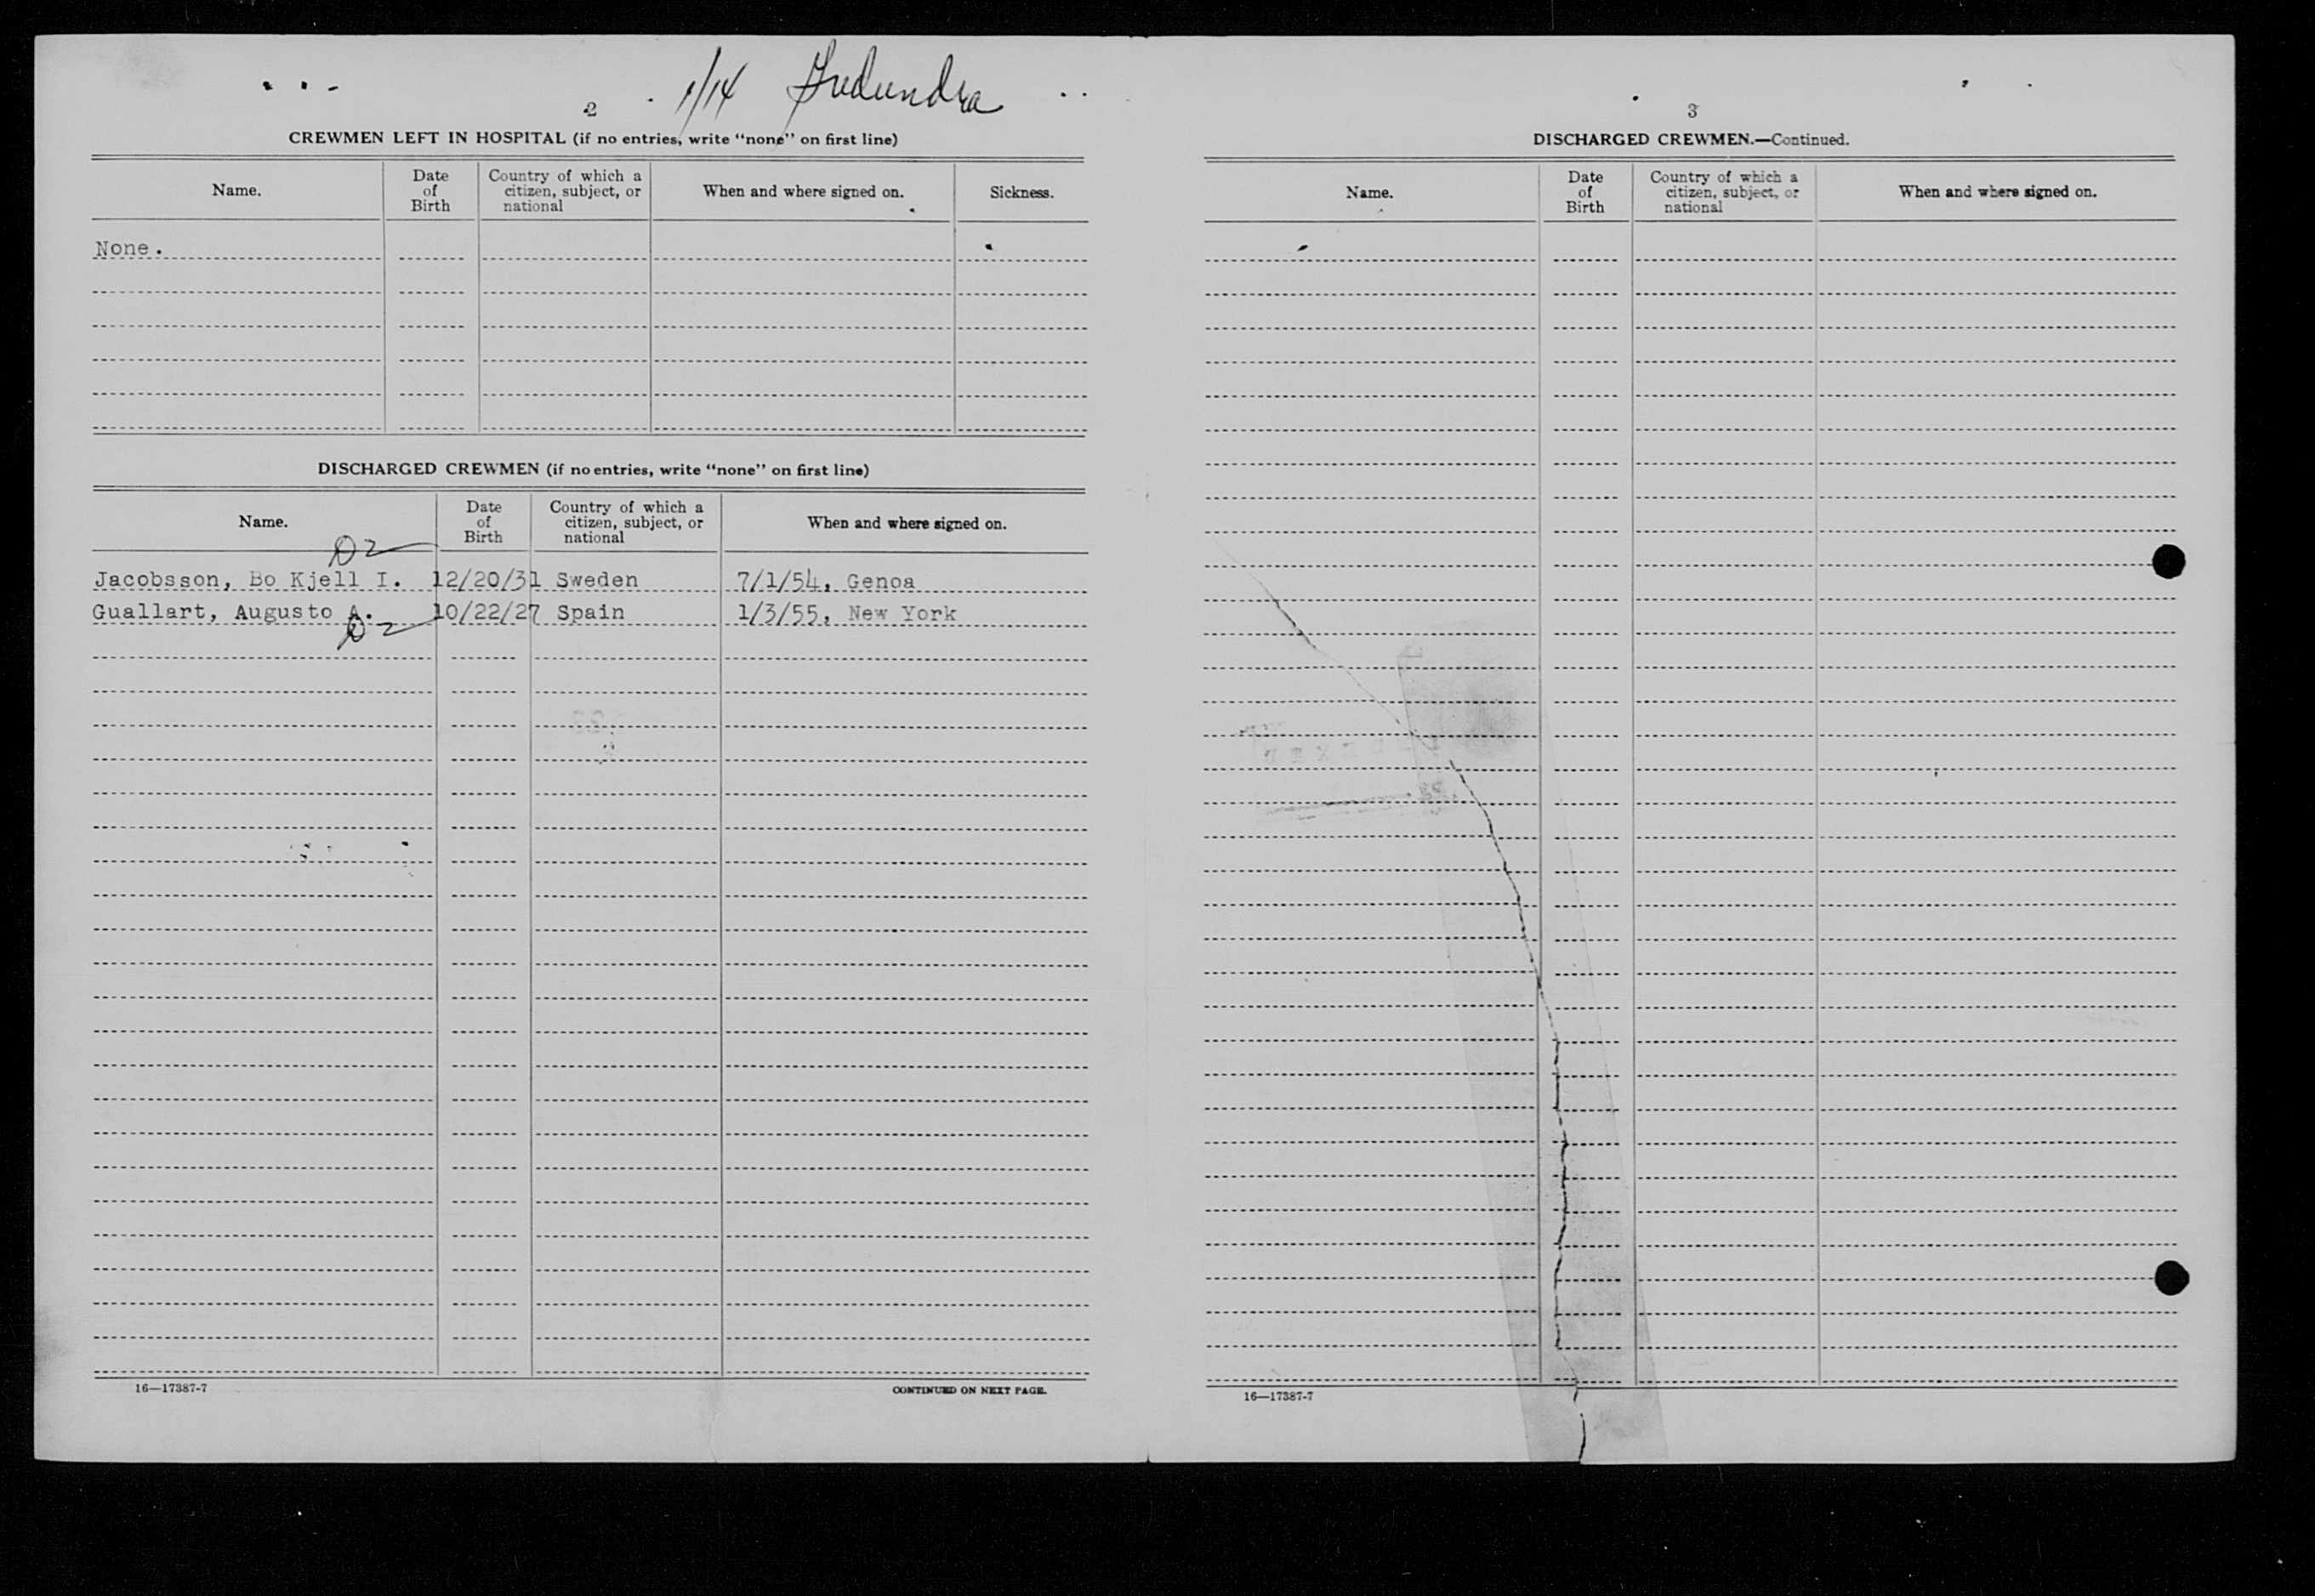 1/14
2
CREWMEN LEFT IN HOSPITAL (if no entries, write "none" on first line)
Name.
Date of Birth
Country of which a citizen, subject, or national
When and where signed on.
Sickness.
None.
DISCHARGED CREWMEN (if no entries, write "none" on first line)
Name.
Date of Birth
Country of which a citizen, subject, or national
When and where signed on.
D2
Jacobsson, Bo Kjell I. 12/20/31 Sweden 7/1/54, Genoa
Guallart, Augusto A. 10/22/27 Spain 1/3/55, New York
D2
16—17387-7
CONTINUED ON NEXT PAGE.
3
DISCHARGED CREWMEN.—Continued.
Name.
Date of Birth
Country of which a citizen, subject, or national
When and where signed on.
16—17387-7